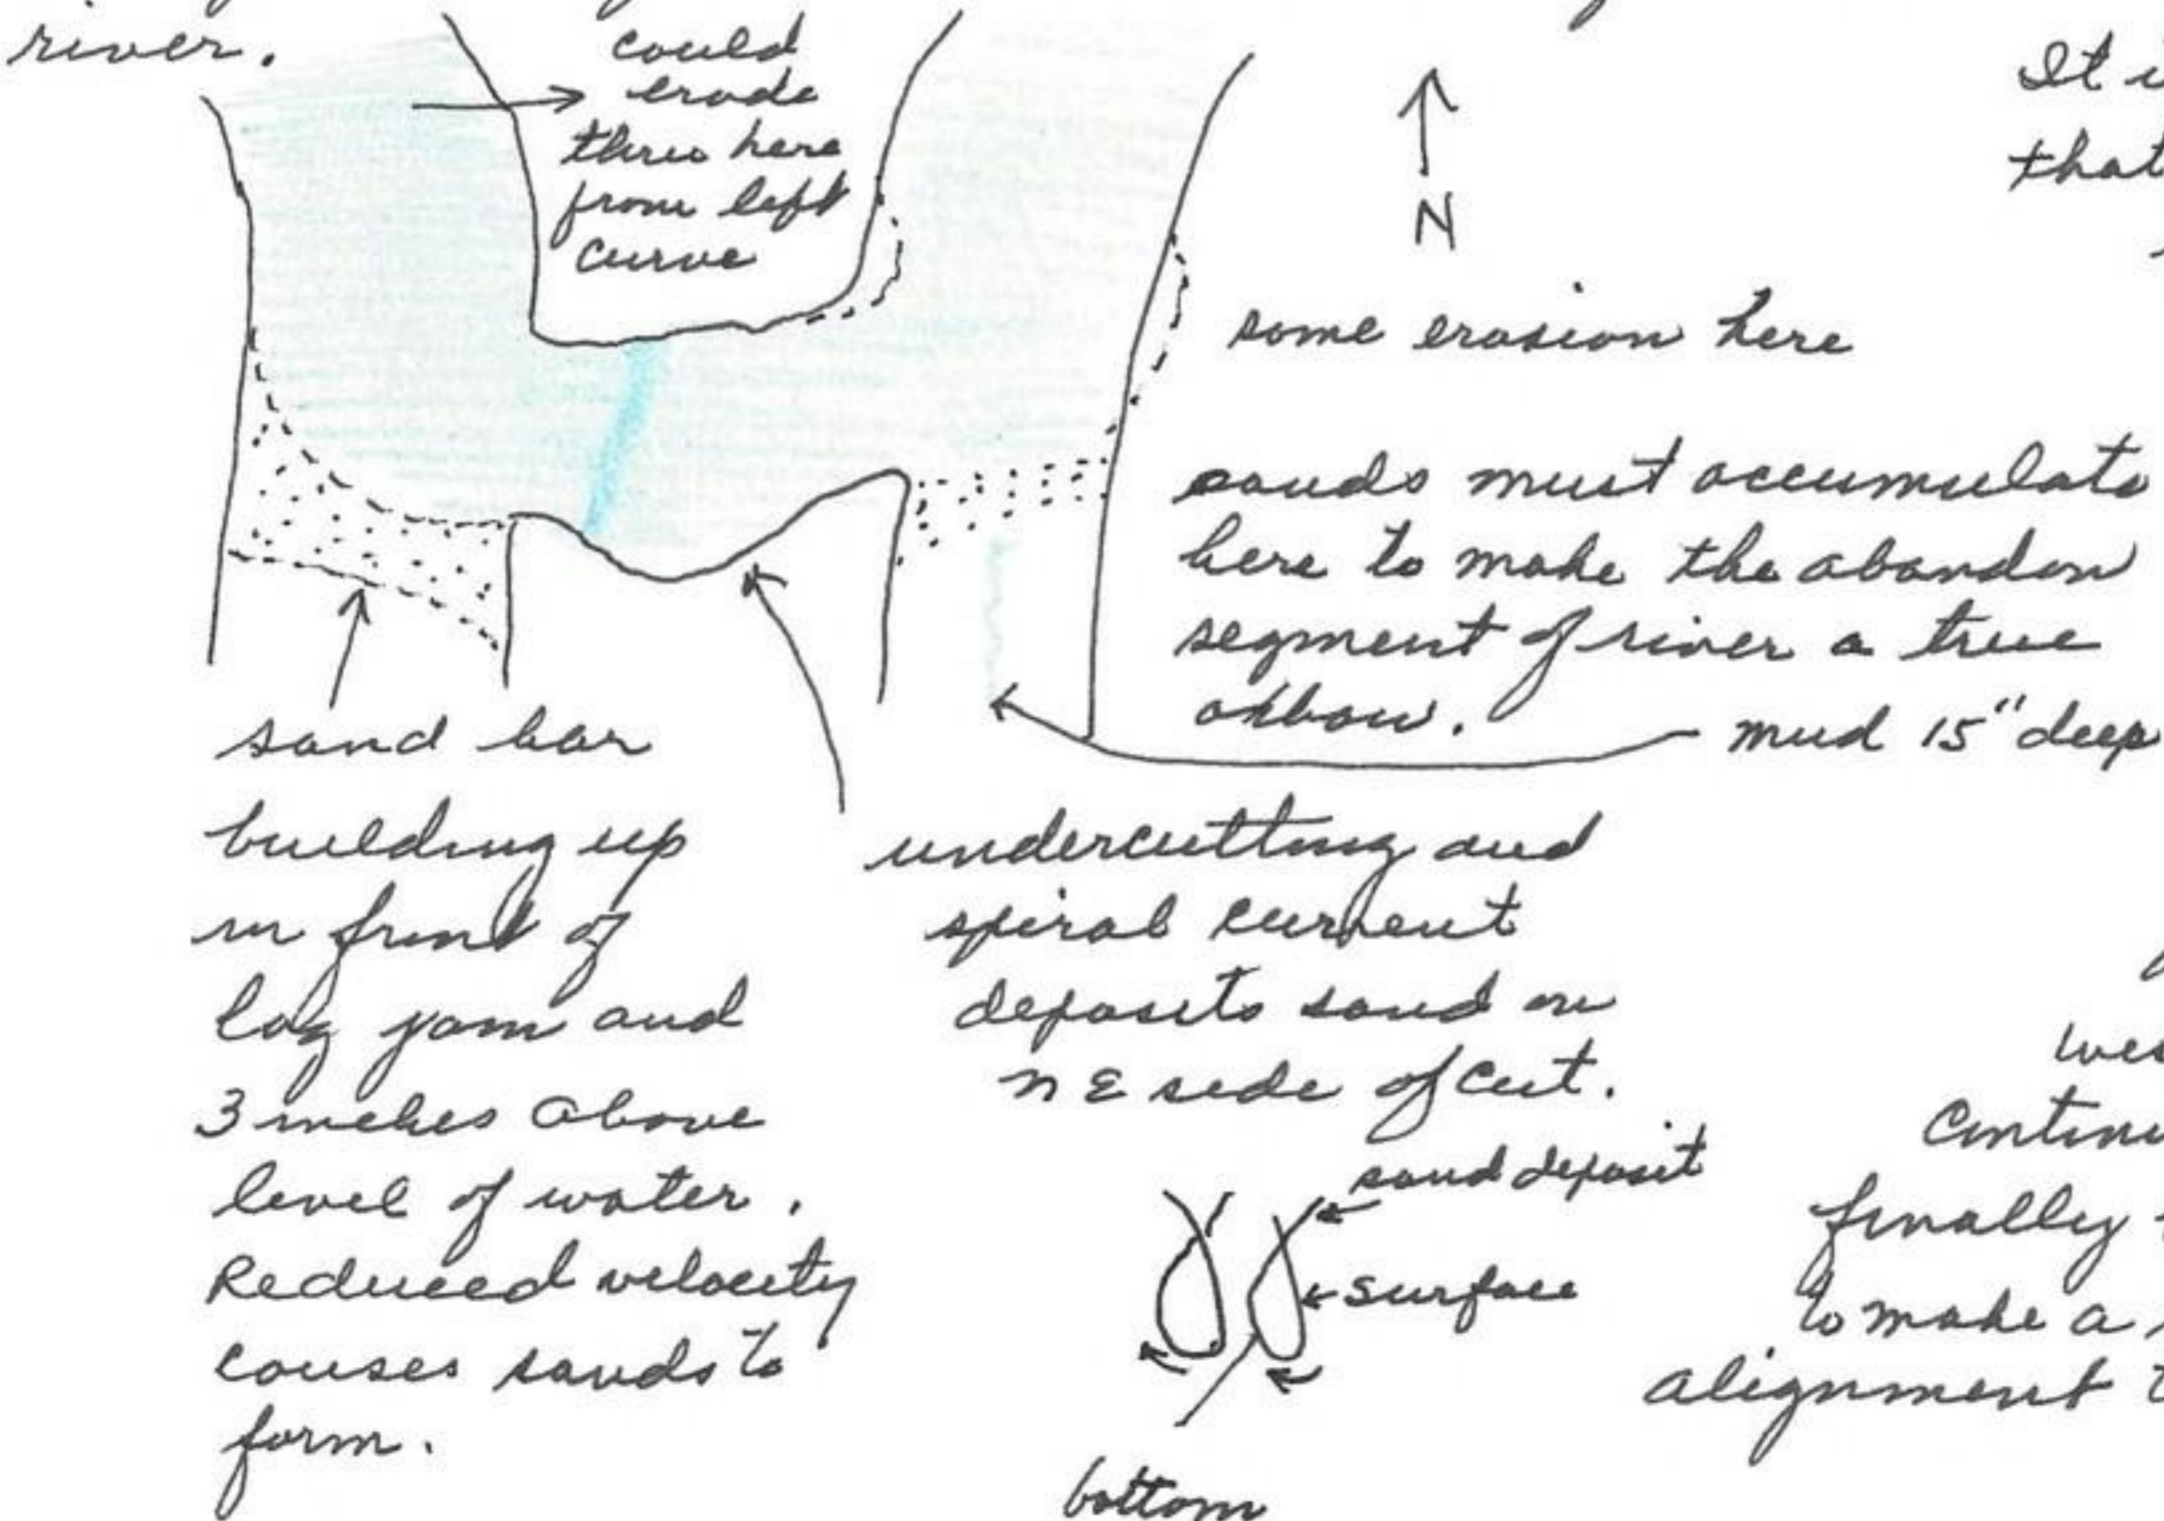 river.
could
erode
thru here
from left
curve
N
It i
that
some erosion here
sands must accumulate
here to make the abandon
segment of river a true
oxbow.
mud 15" deep
sand bar
building up
in front of
log jam and
3 inches above
level of water.
Reduced velocity
causes sands to
form.
undercutting and
spiral current
deposits sand on
NE side of cut.
sand deposit
surface
bottom
wes
Continu
finally
to make a
alignment